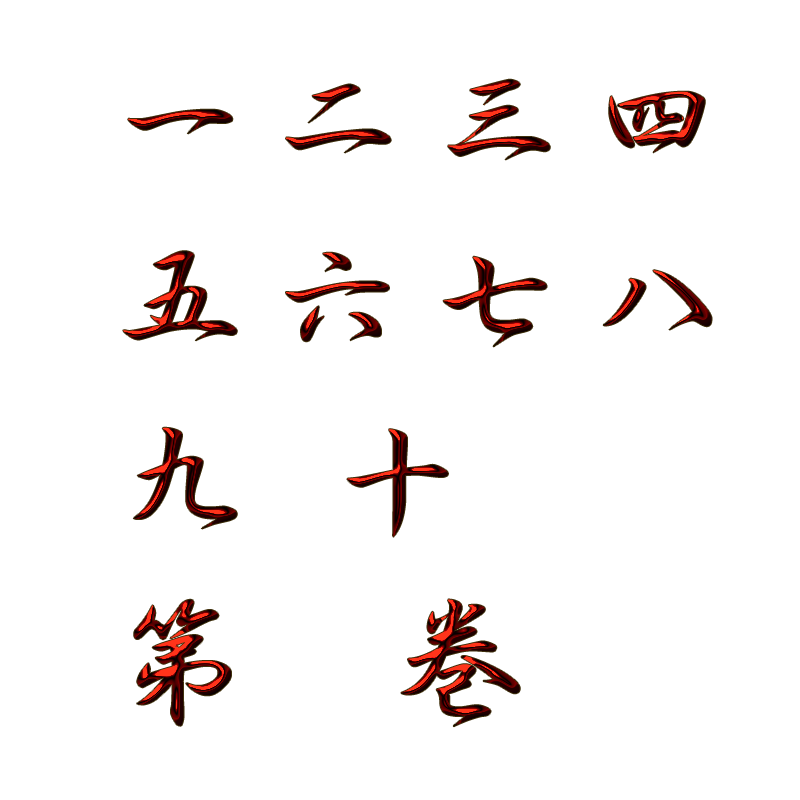 一 二 三 四
五 六 七 八
九 十
第 巻